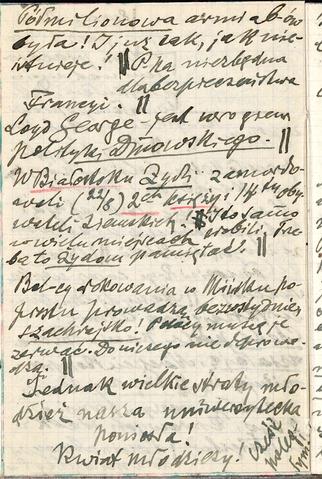 Półmilionowa armia b-ów
była! I już tak, jak nie
istnieje! || P-ka niezbędna
dla bezpieczeństwa
Francyi. ||
Loyd George - jest wrogiem
polityki Dmowskiego. ||
W Białostoku Żydzi zamordo-
wali (22/8) 2ch księży i 14tu oby-
wateli ziemskich! || To samo
w wielu miejscach robili. Trze-
ba to żydom pamiętać! ||
Bol-cy rokowania w Mińsku po
prostu prowadzą bezwstydnie
szachrajsko! Polacy muszą je
zerwać. Do niczego nie doprowa-
dzą. ||
Jednak wielkie straty mło-
dzież nasza uniwersytecka
poniosła!
Kwiat młodzieży!
cześć
poleg-
łym!